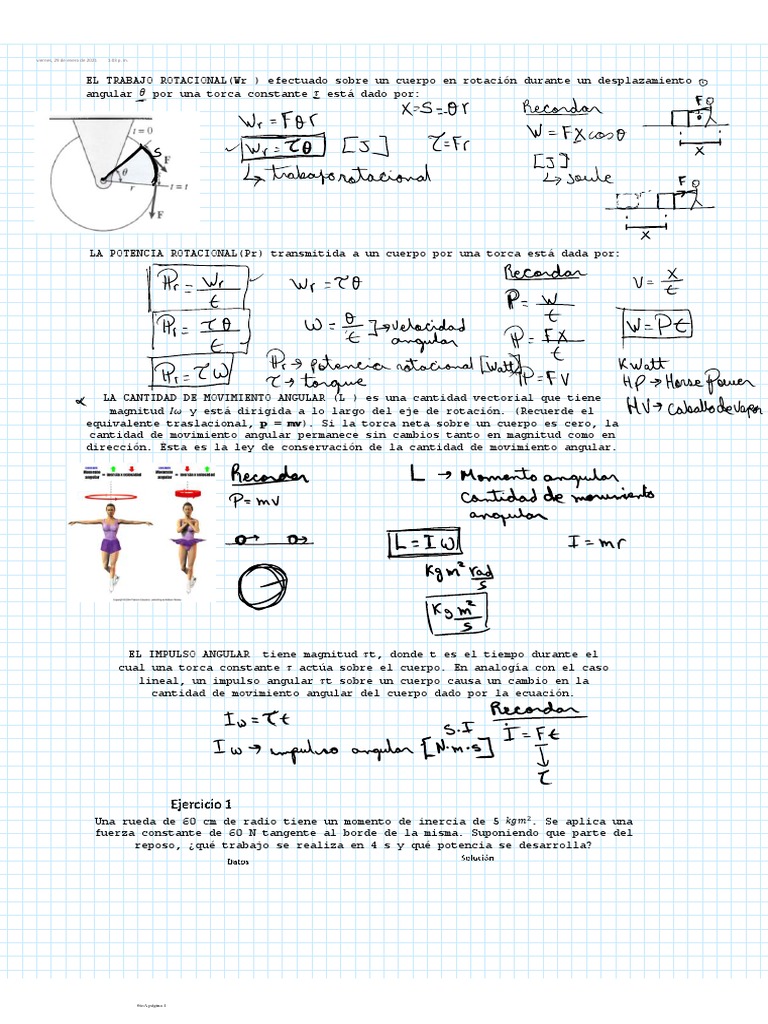 viernes, 29 de enero de 2021 1:55 p. m.
EL TRABAJO ROTACIONAL(Wr ) efectuado sobre un cuerpo en rotación durante un desplazamiento
angular θ por una torca constante τ está dado por:
t = 0
S
F
θ
r
t = t
F
Wr = Fθr
X=S=θr
Wr = τθ [J]
τ=Fr
↳ trabajo rotacional
Recordar
W = FX cosθ
[J]
↳ Joule
F
θ
X
F
X
LA POTENCIA ROTACIONAL(Pr) transmitida a un cuerpo por una torca está dada por:
Pr = Wr/t
Wr = τθ
Pr = τθ/t
ω = θ/t ]→velocidad
angular
Pr = τω
Pr → potencia rotacional [Watt]
τ → torque
Recordar
P = W/t
P = FX/t
P = FV
V = X/t
W = Pt
KWatt
HP → Horse Power
HV → Caballo de vapor
LA CANTIDAD DE MOVIMIENTO ANGULAR (L ) es una cantidad vectorial que tiene
magnitud Iω y está dirigida a lo largo del eje de rotación. (Recuerde el
equivalente traslacional, p = mv). Si la torca neta sobre un cuerpo es cero, la
cantidad de movimiento angular permanece sin cambios tanto en magnitud como en
dirección. Esta es la ley de conservación de la cantidad de movimiento angular.
Recordar
P = mv
L → Momento angular
Cantidad de movimiento
angular
L = I ω
I = mr
Kg m² rad/s
Kg m²/s
EL IMPULSO ANGULAR tiene magnitud τt, donde t es el tiempo durante el
cual una torca constante τ actúa sobre el cuerpo. En analogía con el caso
lineal, un impulso angular τt sobre un cuerpo causa un cambio en la
cantidad de movimiento angular del cuerpo dado por la ecuación.
Iω = τt
Iω → impulso angular [N·m·s]
S.I
Recordar
I = Ft
↓
τ
Ejercicio 1
Una rueda de 60 cm de radio tiene un momento de inercia de 5 kgm². Se aplica una
fuerza constante de 60 N tangente al borde de la misma. Suponiendo que parte del
reposo, ¿qué trabajo se realiza en 4 s y qué potencia se desarrolla?
Datos
Solución